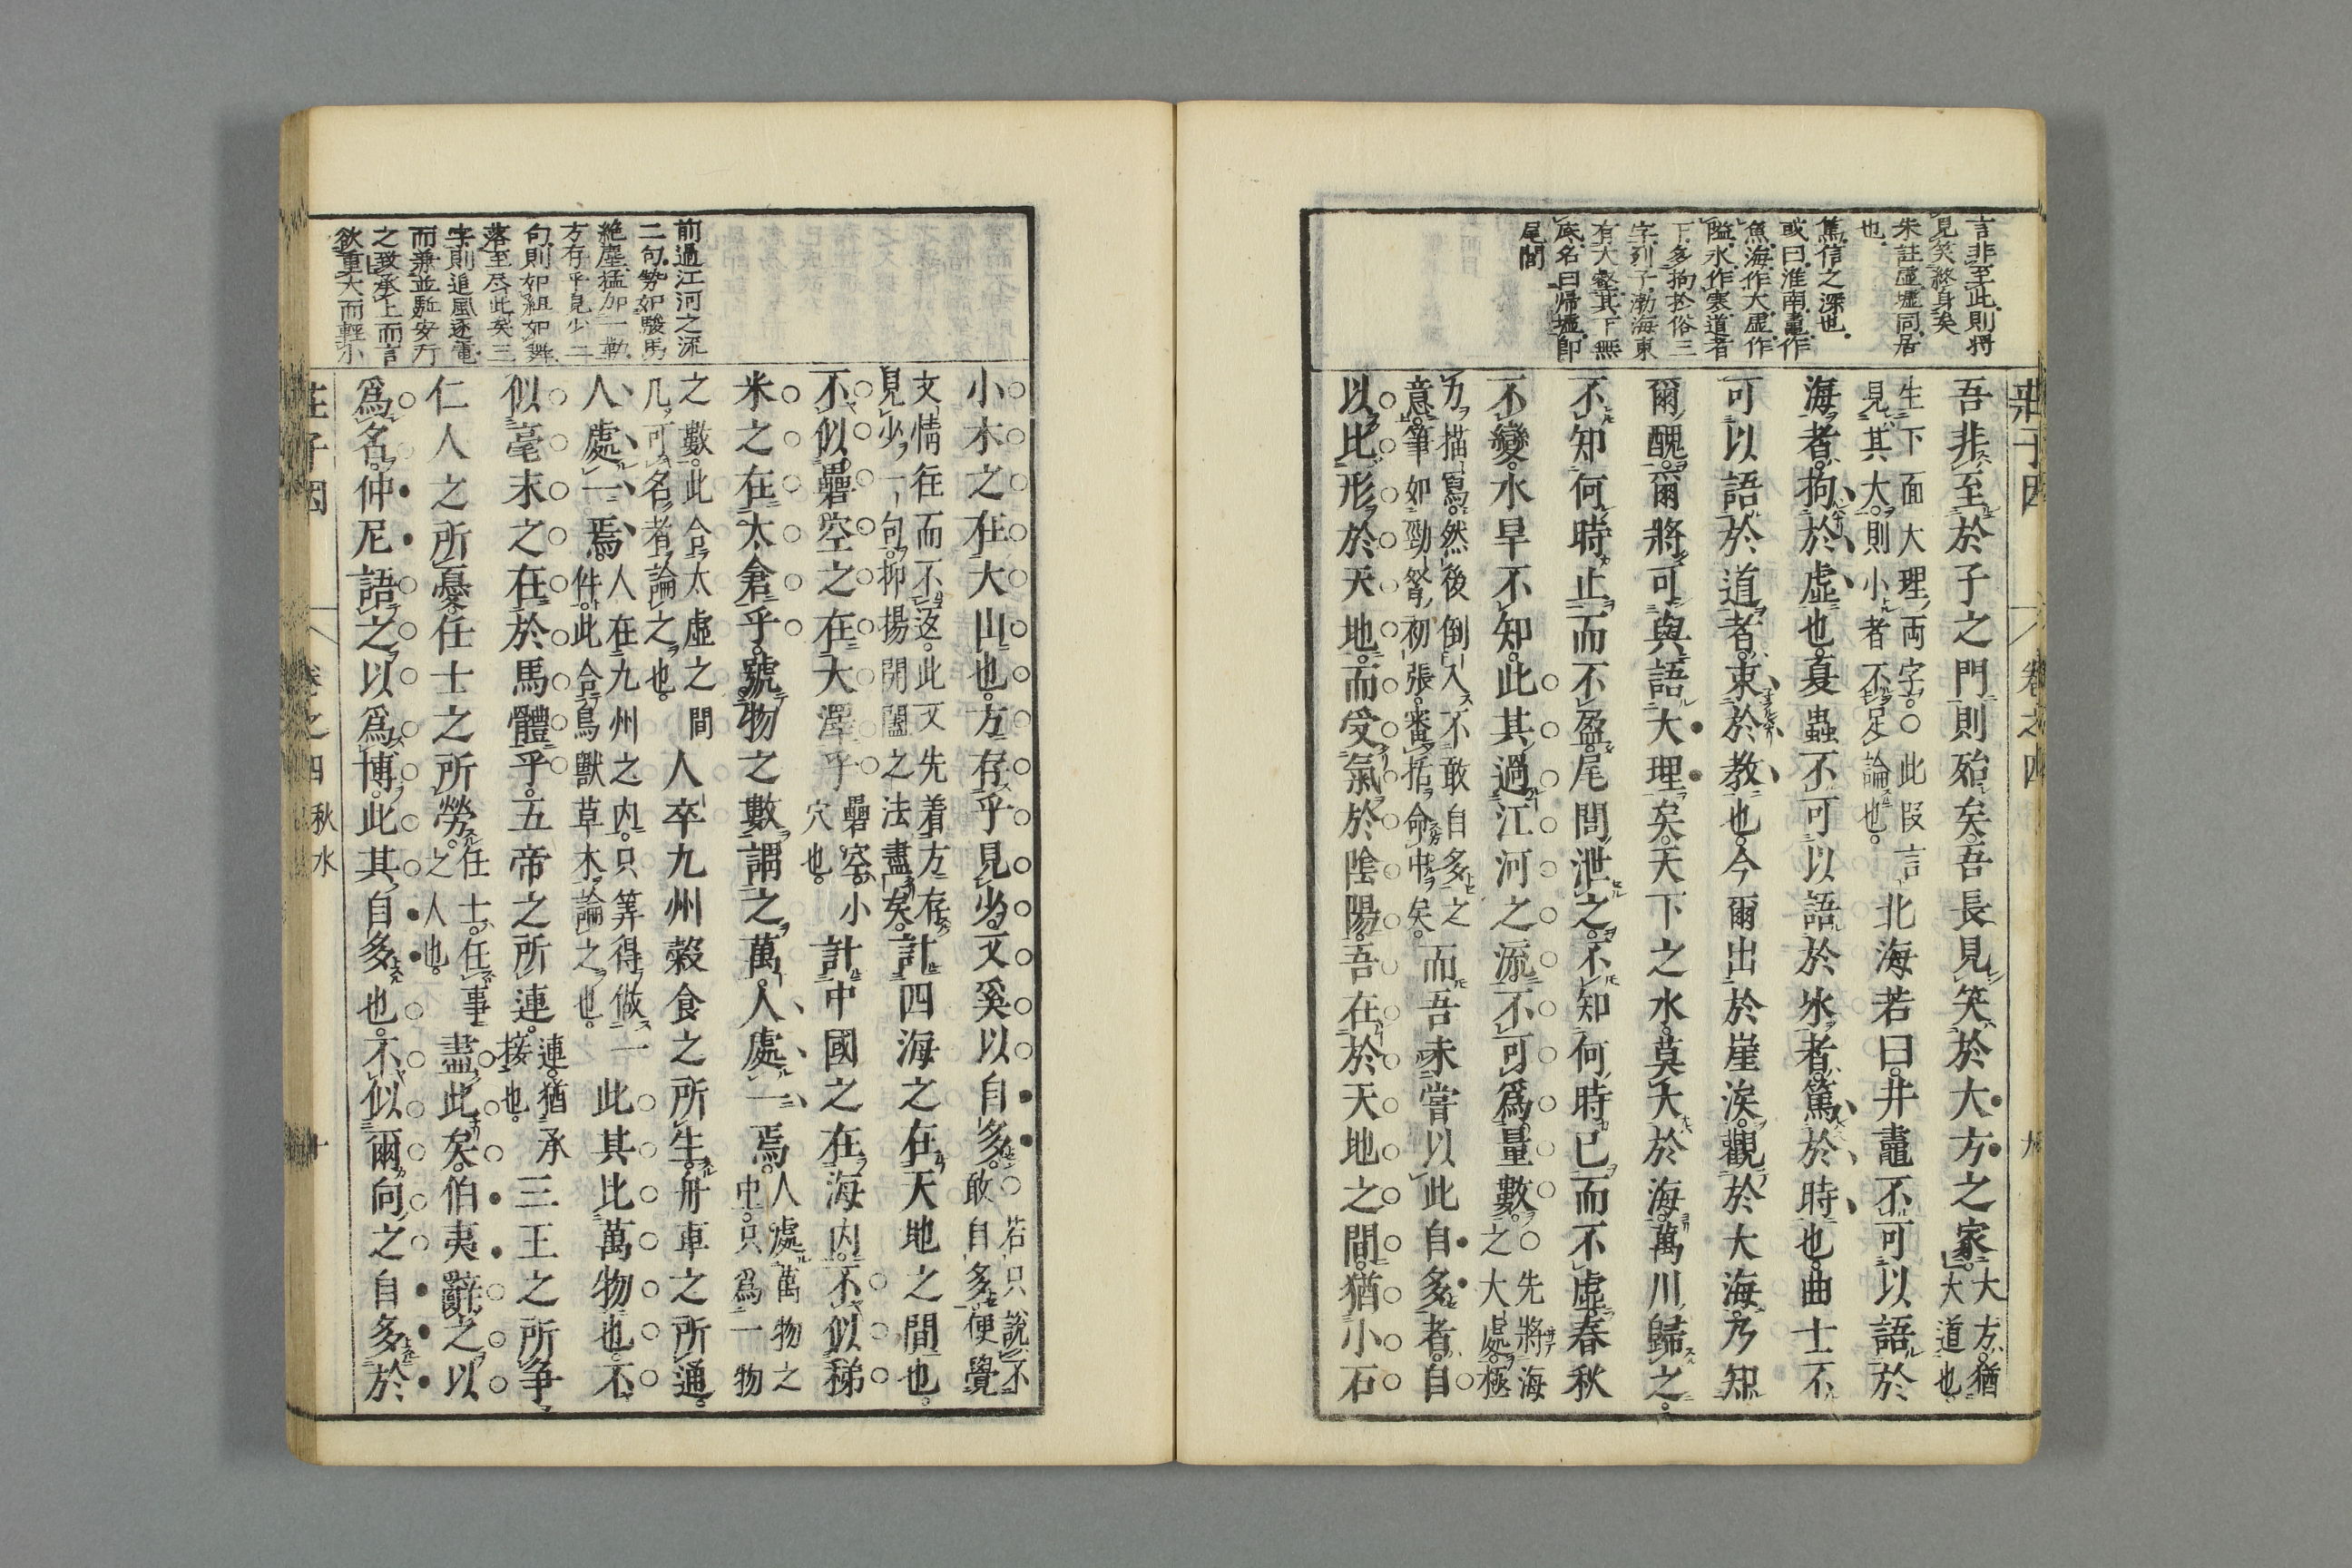 言非至此則將
見笑終身矣
朱註虛墟同居
也
篤信之深也
或曰淮南鼃作
魚海作大虛作
隘氷作寒道者
下多拘於俗三
字列子渤海東
有大壑其下無
底名曰帰墟即
尾閭
莊子因 卷之四
吾非至於子之門則殆矣吾長見笑於大方之家大方猶大道也
生下面大理両字○此段言見其大則小者不足論也北海若曰井鼃不可以語於
海者拘於虛也夏蟲不可以語於氷者篤於時也曲士不
可以語於道者束於教也今爾出於崖涘觀於大海乃知
爾醜爾將可與語大理矣天下之水莫大於海萬川歸之
不知何時止而不盈尾閭泄之不知何時已而不虛春秋
不變水旱不知此其過江河之流不可爲量數○先將海之大處極
力描寫然後倒入不敢自多之意筆如勁弩初張審括命中矣而吾未嘗以此自多者自
以比形於天地而受氣於陰陽吾在於天地之間猶小石
前過江河之流
二句勢如駿馬
絶塵猛加一勒
方存乎見少二
句則如組如舞
落至尽此矣三
字則追風逐電
而兼並駈安行
之致承上而言
欲重大而輕小
小木之在大山也方存乎見少又奚以自多○若只說不敢自多便覺
文情往而不返此又先着方存見少一句抑揚開闔之法盡矣計四海之在天地之間也
不似礨空之在大澤乎礨空小穴也計中國之在海内不似稊
米之在太倉乎號物之數謂之萬人處一焉人處萬物之中只爲一物
之數此合太虛之間凡可名者論之也人卒九州穀食之所生舟車之所通
人處一焉人在九州之内只筭得做一件此合鳥獸草木論之也此其比萬物也不
似毫末之在於馬體乎五帝之所連連猶承接也三王之所争
仁人之所憂任士之所勞任士任事之人也盡此矣伯夷辭之以
爲名仲尼語之以爲博此其自多也不似爾向之自多於
莊子因 卷之四 秋水 十